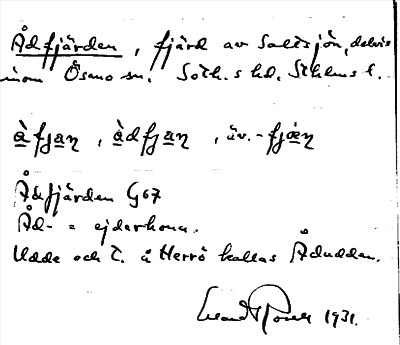 Ådfjärden, fjärd av Saltsjön, delvis
inom Ösmo sn. Soth.s hd. Sthlms l.
à̱fja̱ṉ, à̱dfja̱ṉ, äv. -fjæ̱ṉ
Ådfjärden G67
Åd- = ejderhona.
Udde och t. å Herrö kallas Åudden.
1931.